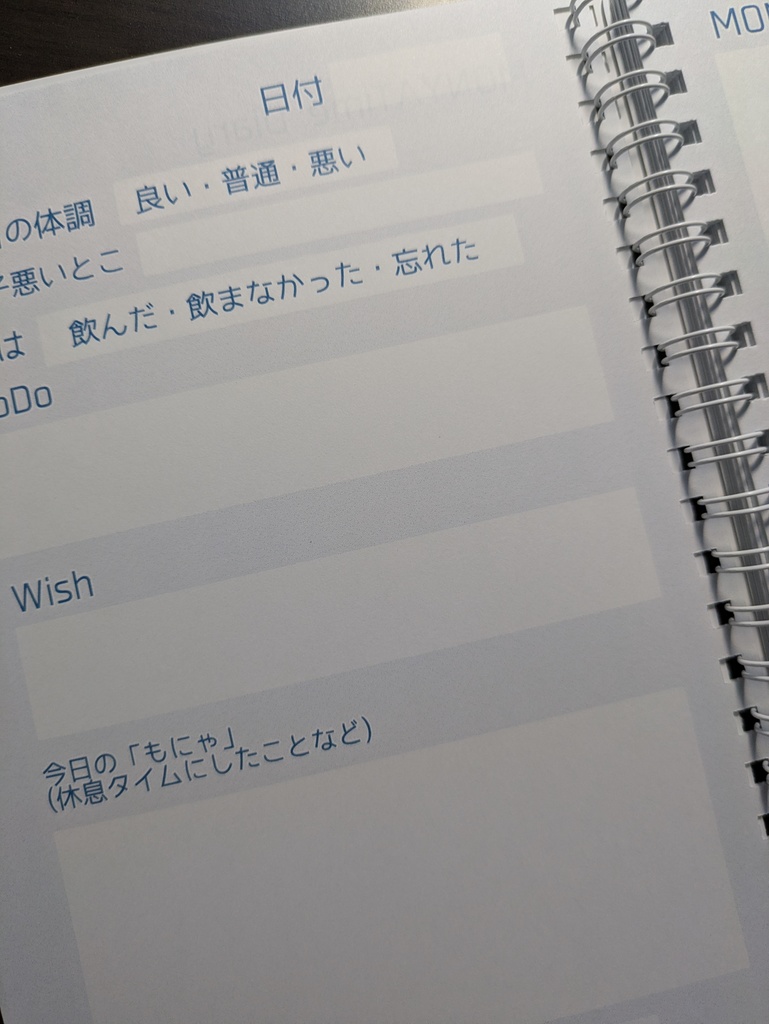 日付
の体調 良い・普通・悪い
悪いとこ
は 飲んだ・飲まなかった・忘れた
oDo
Wish
今日の「もにゃ」
(休息タイムにしたことなど)
MO